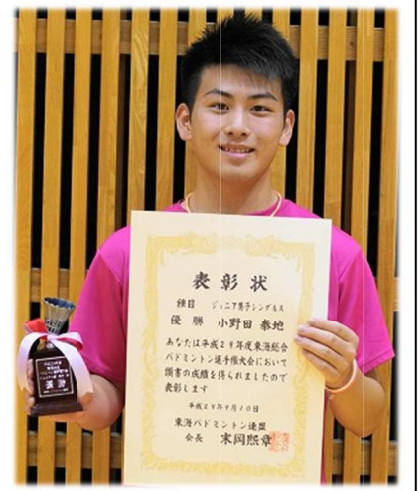 表彰状
種目 ジュニア男子シングルス
優勝 小野田 泰地
あなたは平成29年度東海総合
バドミントン選手権大会において
頭書の成績を得られましたので
表彰します
平成29年9月10日
東海バドミントン連盟
会長 末岡熙章